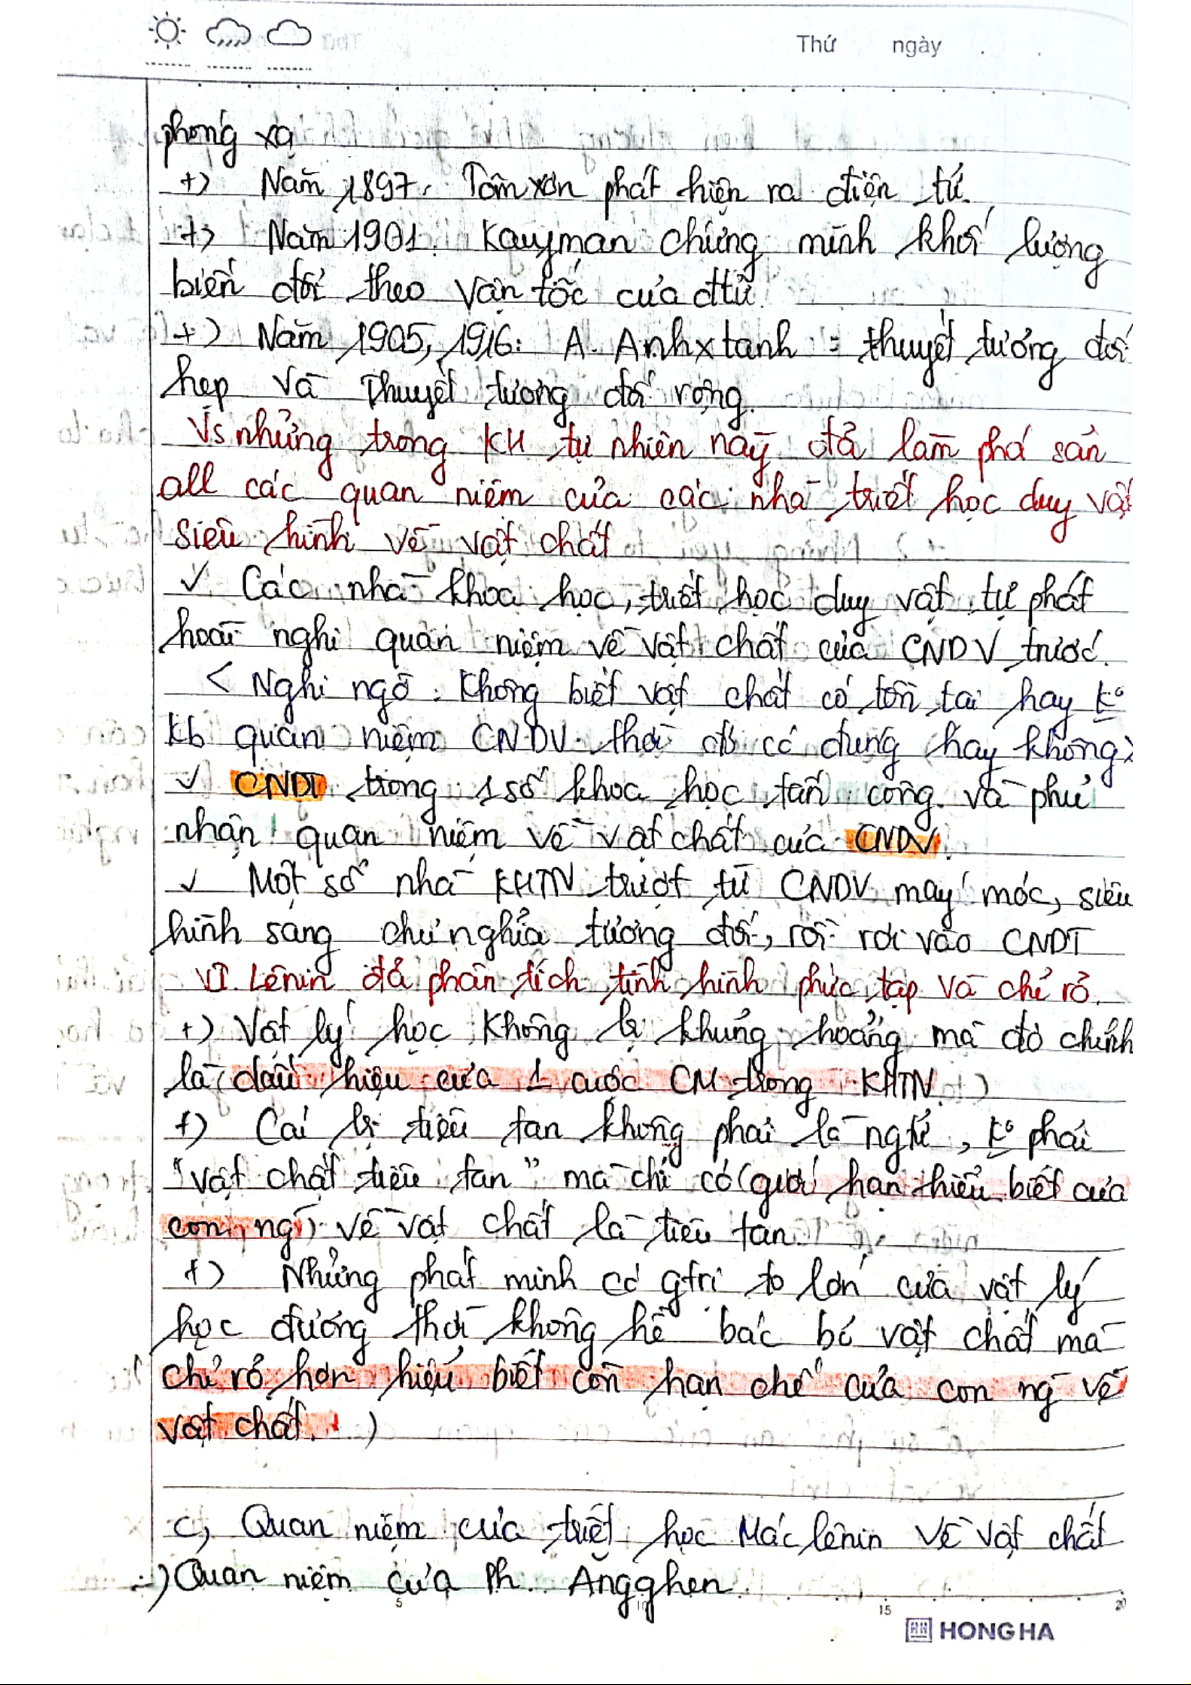 Thứ ngày
phóng xạ
+) Năm 1897. Tôm xơn phát hiện ra điện tử.
+) Năm 1901. Kaufman chứng minh khối lượng
biến đổi theo vận tốc của đtử.
+) Năm 1905, 1916: A. Anhxtanh: thuyết tương đối
hẹp và Thuyết tương đối rộng.
Vs những trong KH tự nhiên này đã làm phá sản
all các quan niệm của các nhà triết học duy vật
siêu hình về vật chất
✓ Các nhà khoa học, triết học duy vật tự phát
hoài nghi quan niệm về vật chất của CNDV trước.
< Nghi ngờ: Không biết vật chất có tồn tại hay ko
kb quan niệm CNDV thời đó có đúng hay không>
✓ CNDT trong 1 số khoa học tấn công và phủ
nhận quan niệm về vật chất của CNDV.
✓ Một số nhà KHTN trượt từ CNDV máy móc, siêu
hình sang chủ nghĩa tương đối, rồi rơi vào CNDT
VI. Lênin đã phân tích tình hình phức tạp và chỉ rõ.
+) Vật lý học không bị khủng hoảng mà đó chính
là (dấu hiệu của 1 cuộc CM trong KHTN.)
+) Cái bị tiêu tan không phải là ngtử, ko phải
"vật chất tiêu tan" mà chỉ có (giới hạn hiểu biết của
con ng) về vật chất là tiêu tan.
+) Những phát minh có gtrị to lớn của vật lý
học đương thời không hề bác bỏ vật chất mà
chỉ rõ hơn hiểu biết còn hạn chế của con ng về
vật chất. )
c, Quan niệm của triết học Mác lênin về vật chất
.) Quan niệm của Ph. Ăngghen.
5 10 15 20
HONG HA